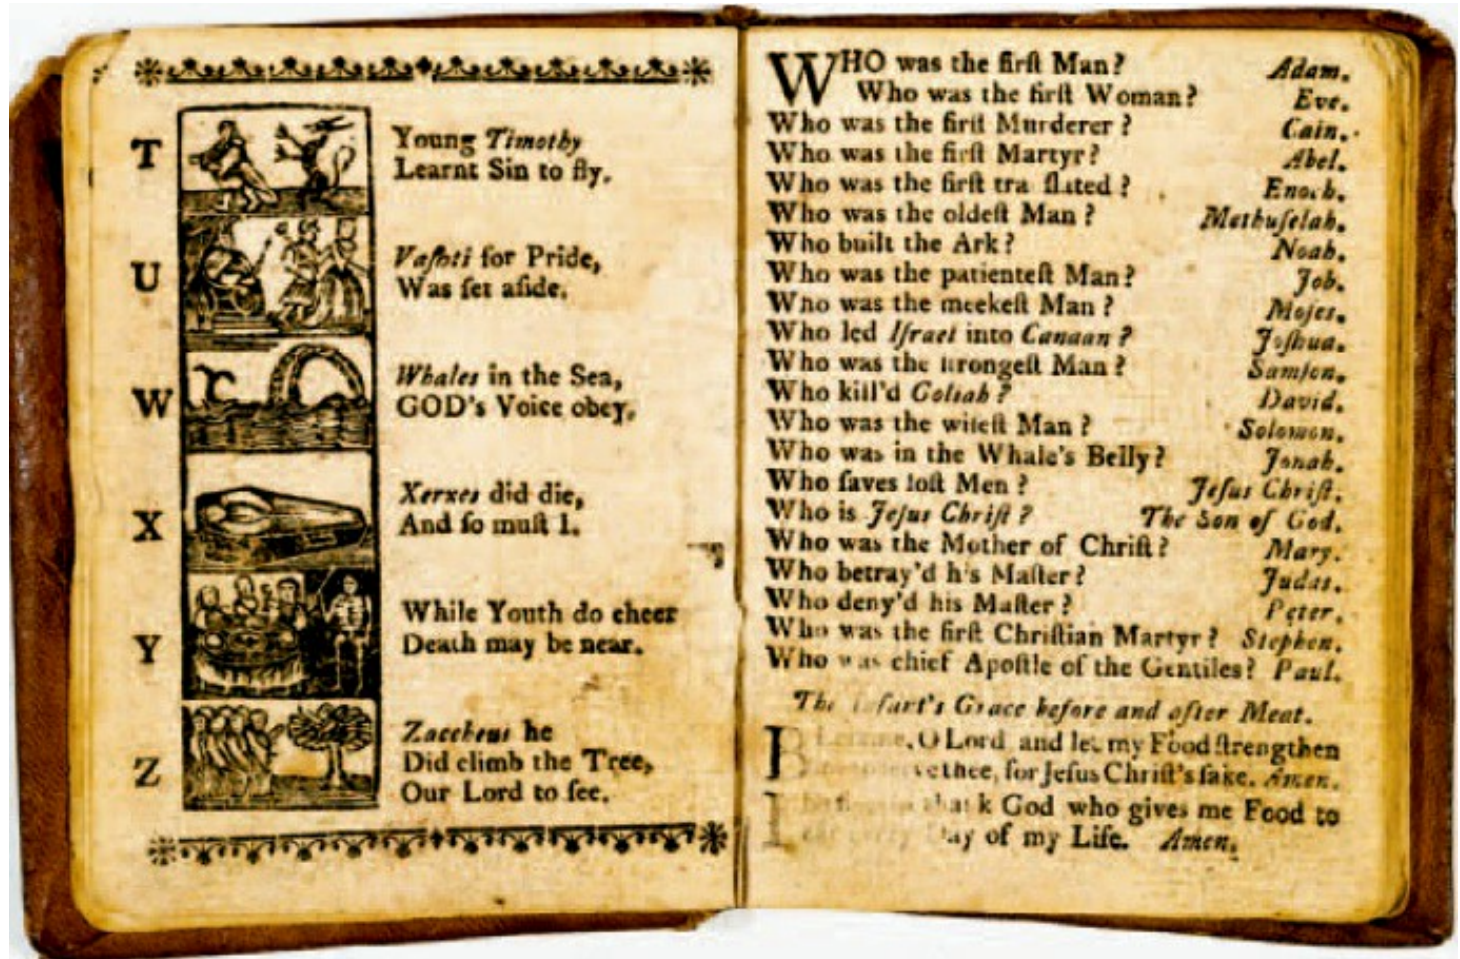 T
Young Timothy
Learnt Sin to fly.
U
Vaſhti for Pride,
Was ſet aſide.
W
Whales in the Sea,
GOD's Voice obey.
X
Xerxes did die,
And ſo muſt I.
Y
While Youth do cheer
Death may be near.
Z
Zaccheus he
Did climb the Tree,
Our Lord to ſee.
WHO was the firſt Man? Adam.
Who was the firſt Woman? Eve.
Who was the firſt Murderer? Cain.
Who was the firſt Martyr? Abel.
Who was the firſt tra ſlated? Enoch.
Who was the oldeſt Man? Methuſelah.
Who built the Ark? Noah.
Who was the patienteſt Man? Job.
Who was the meekeſt Man? Moſes.
Who led Iſrael into Canaan? Joſhua.
Who was the ſtrongeſt Man? Samſon.
Who kill'd Goliah? David.
Who was the wiſeſt Man? Solomon.
Who was in the Whale's Belly? Jonah.
Who ſaves loſt Men? Jeſus Chriſt.
Who is Jeſus Chriſt? The Son of God.
Who was the Mother of Chriſt? Mary.
Who betray'd his Maſter? Judas.
Who deny'd his Maſter? Peter.
Who was the firſt Chriſtian Martyr? Stephen.
Who was chief Apoſtle of the Gentiles? Paul.
The Infant's Grace before and after Meat.
O Lord and let my Food ſtrengthen
thee, for Jeſus Chriſt's ſake. Amen.
God who gives me Food to
Day of my Life. Amen.